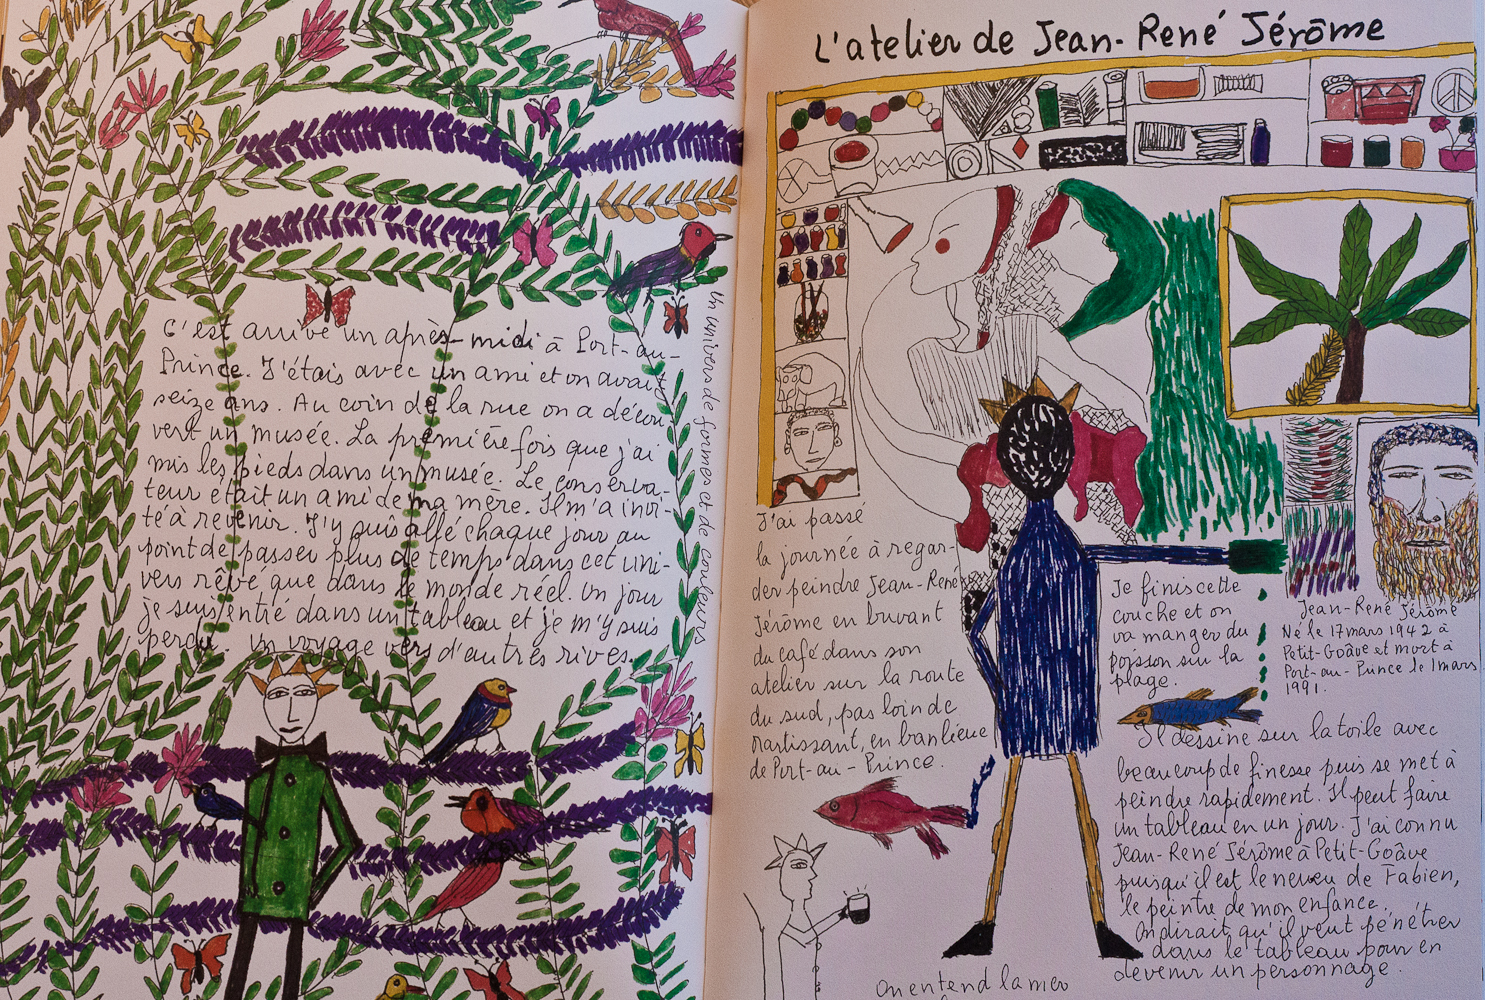 C'est arrivé un après-midi à Port-au-
Prince. J'étais avec un ami et on avait
seize ans. Au coin de la rue on a décou-
vert un musée. La première fois que j'ai
mis les pieds dans un musée. Le conserva-
teur était un ami de ma mère. Il m'a invi-
té à revenir. J'y suis allé chaque jour au
point de passer plus de temps dans cet uni-
vers rêvé que dans le monde réel. Un jour
je suis entré dans un tableau et je m'y suis
perdu. Un voyage vers d'autres rives.
Un univers de formes et de couleurs
L'atelier de Jean-René Jérôme
J'ai passé
la journée à regar-
der peindre Jean-René
Jérôme en buvant
du café dans son
atelier sur la route
du sud, pas loin de
Martissant, en banlieue
de Port-au-Prince.
Je finis cette
couche et on
va manger du
poisson sur la
plage.
Jean-René Jérôme
Né le 17 mars 1942 à
Petit-Goâve et mort à
Port-au-Prince le 1 mars
1991.
Il dessine sur la toile avec
beaucoup de finesse puis se met à
peindre rapidement. Il peut faire
un tableau en un jour. J'ai connu
Jean-René Jérôme à Petit-Goâve
puisqu'il est le neveu de Fabien,
le peintre de mon enfance.
On dirait qu'il veut pénétrer
dans le tableau pour en
devenir un personnage.
On entend la mer